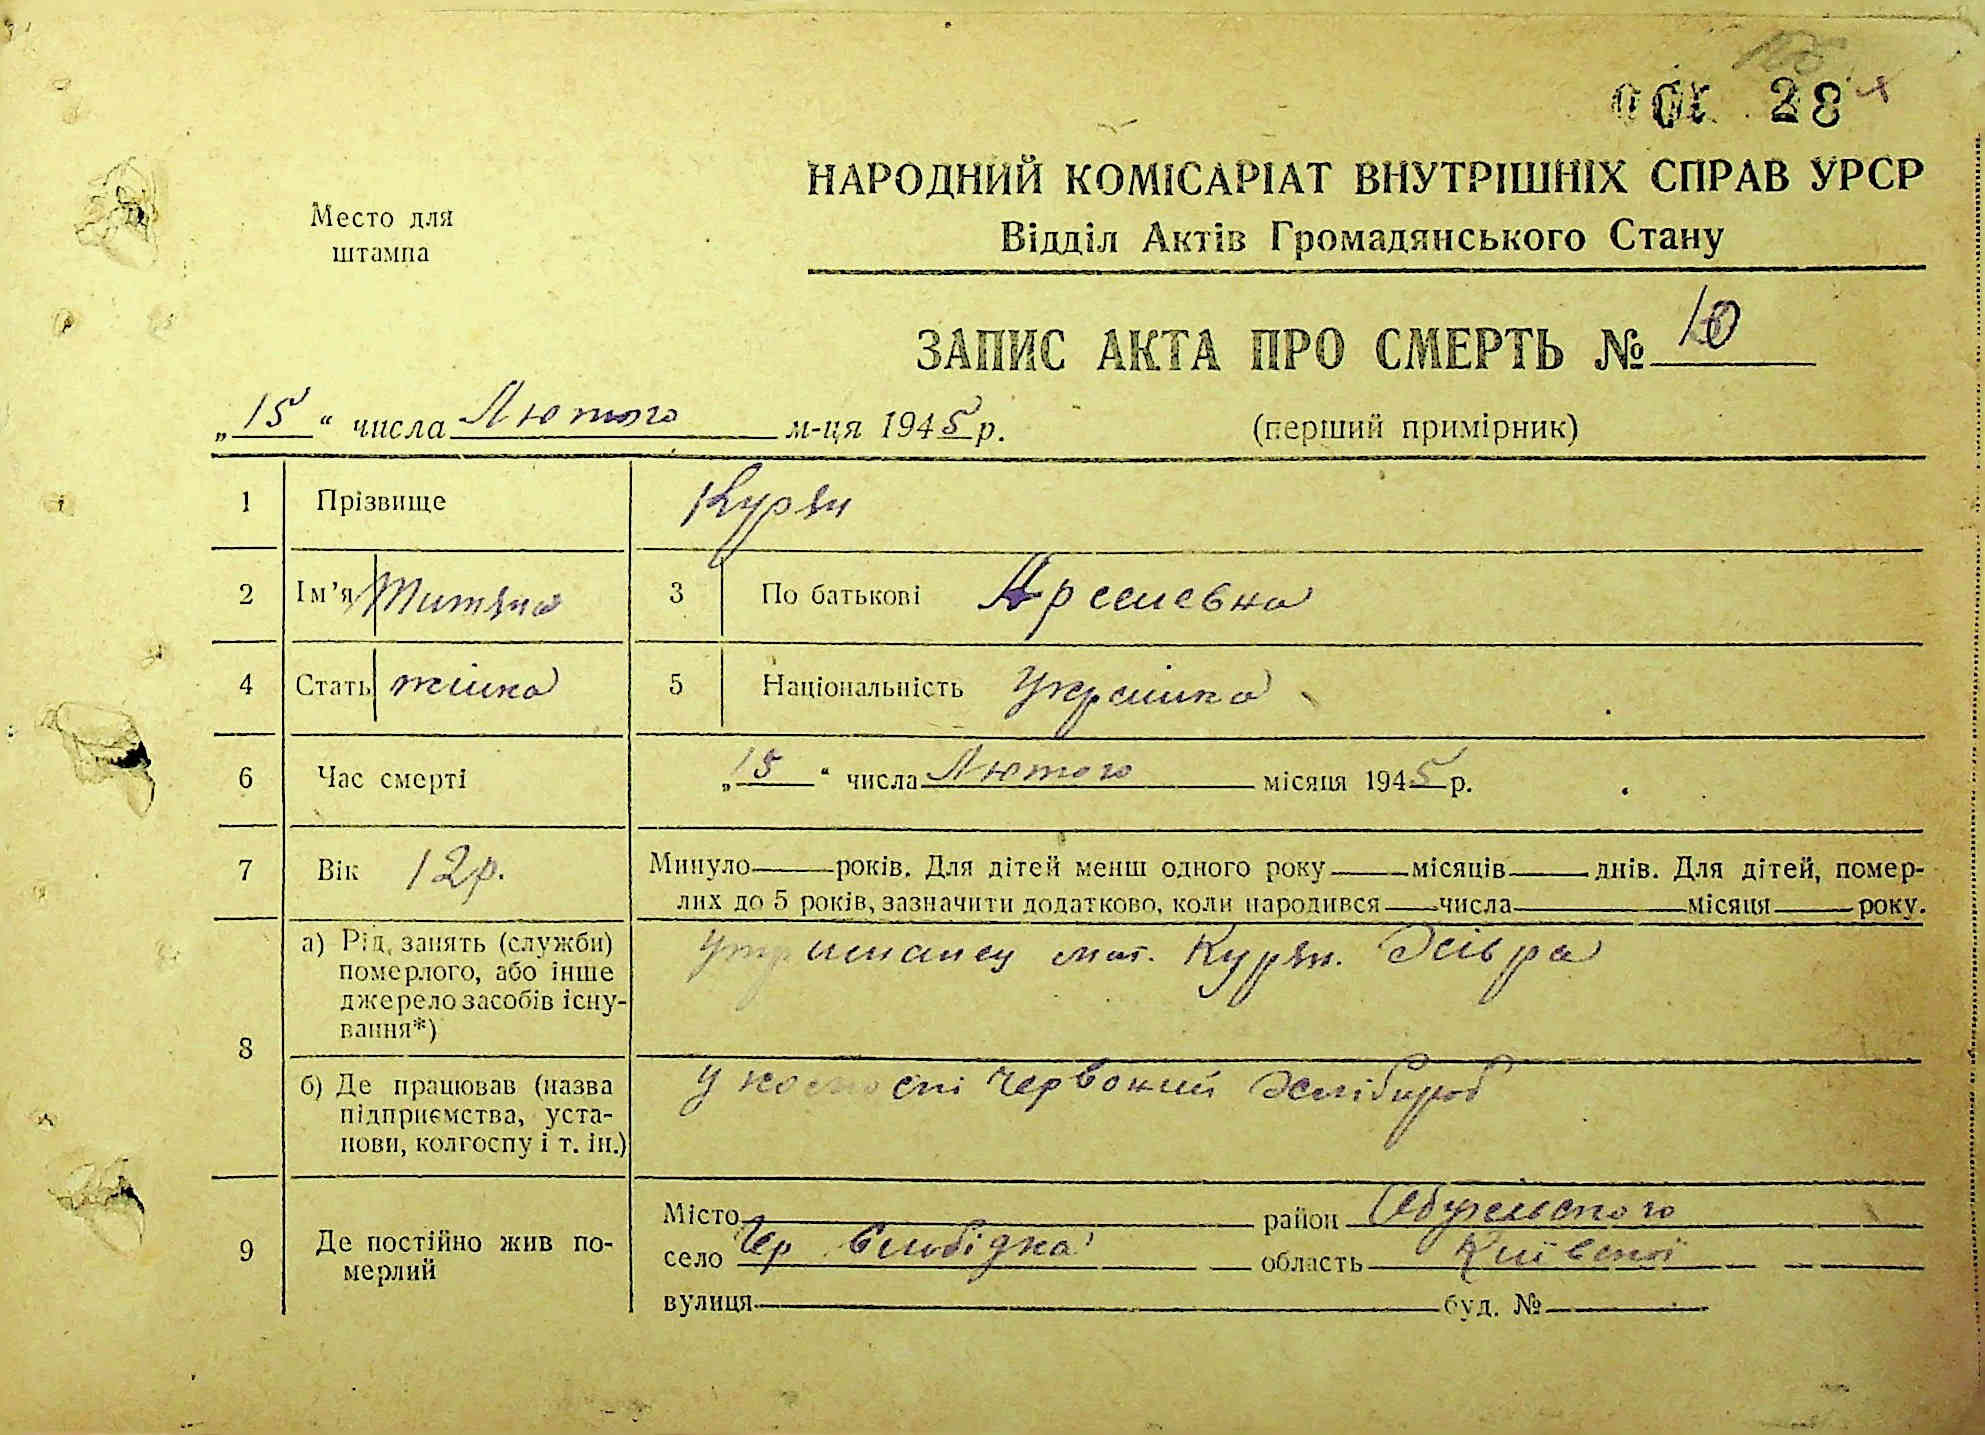 28
НАРОДНИЙ КОМІСАРІАТ ВНУТРІШНІХ СПРАВ УРСР
Место для
штампа
Відділ Актів Громадянського Стану
ЗАПИС АКТА ПРО СМЕРТЬ № 10
„15“ числа Лютого м-ця 1945 р.
(перший примірник)
1 Прізвище Курян
2 Ім’я Титяна 3 По батькові
4 Стать жінка 5 Національність Українка
6 Час смерті „15“ числа Лютого місяця 1945 р.
7 Вік 12 р. Минуло років. Для дітей менш одного року місяців днів. Для дітей, помер-
лих до 5 років, зазначити додатково, коли народився числа місяця року.
8 а) Рід занять (служби)
померлого, або інше
джерело засобів існу-
вання*)
мат. Курян.
б) Де працював (назва
підприємства, уста-
нови, колгоспу і т. ін.)
у Червоний
9 Де постійно жив по-
мерлий
Місто район Обухівського
село Чер Слобідка область Київської
вулиця буд. №